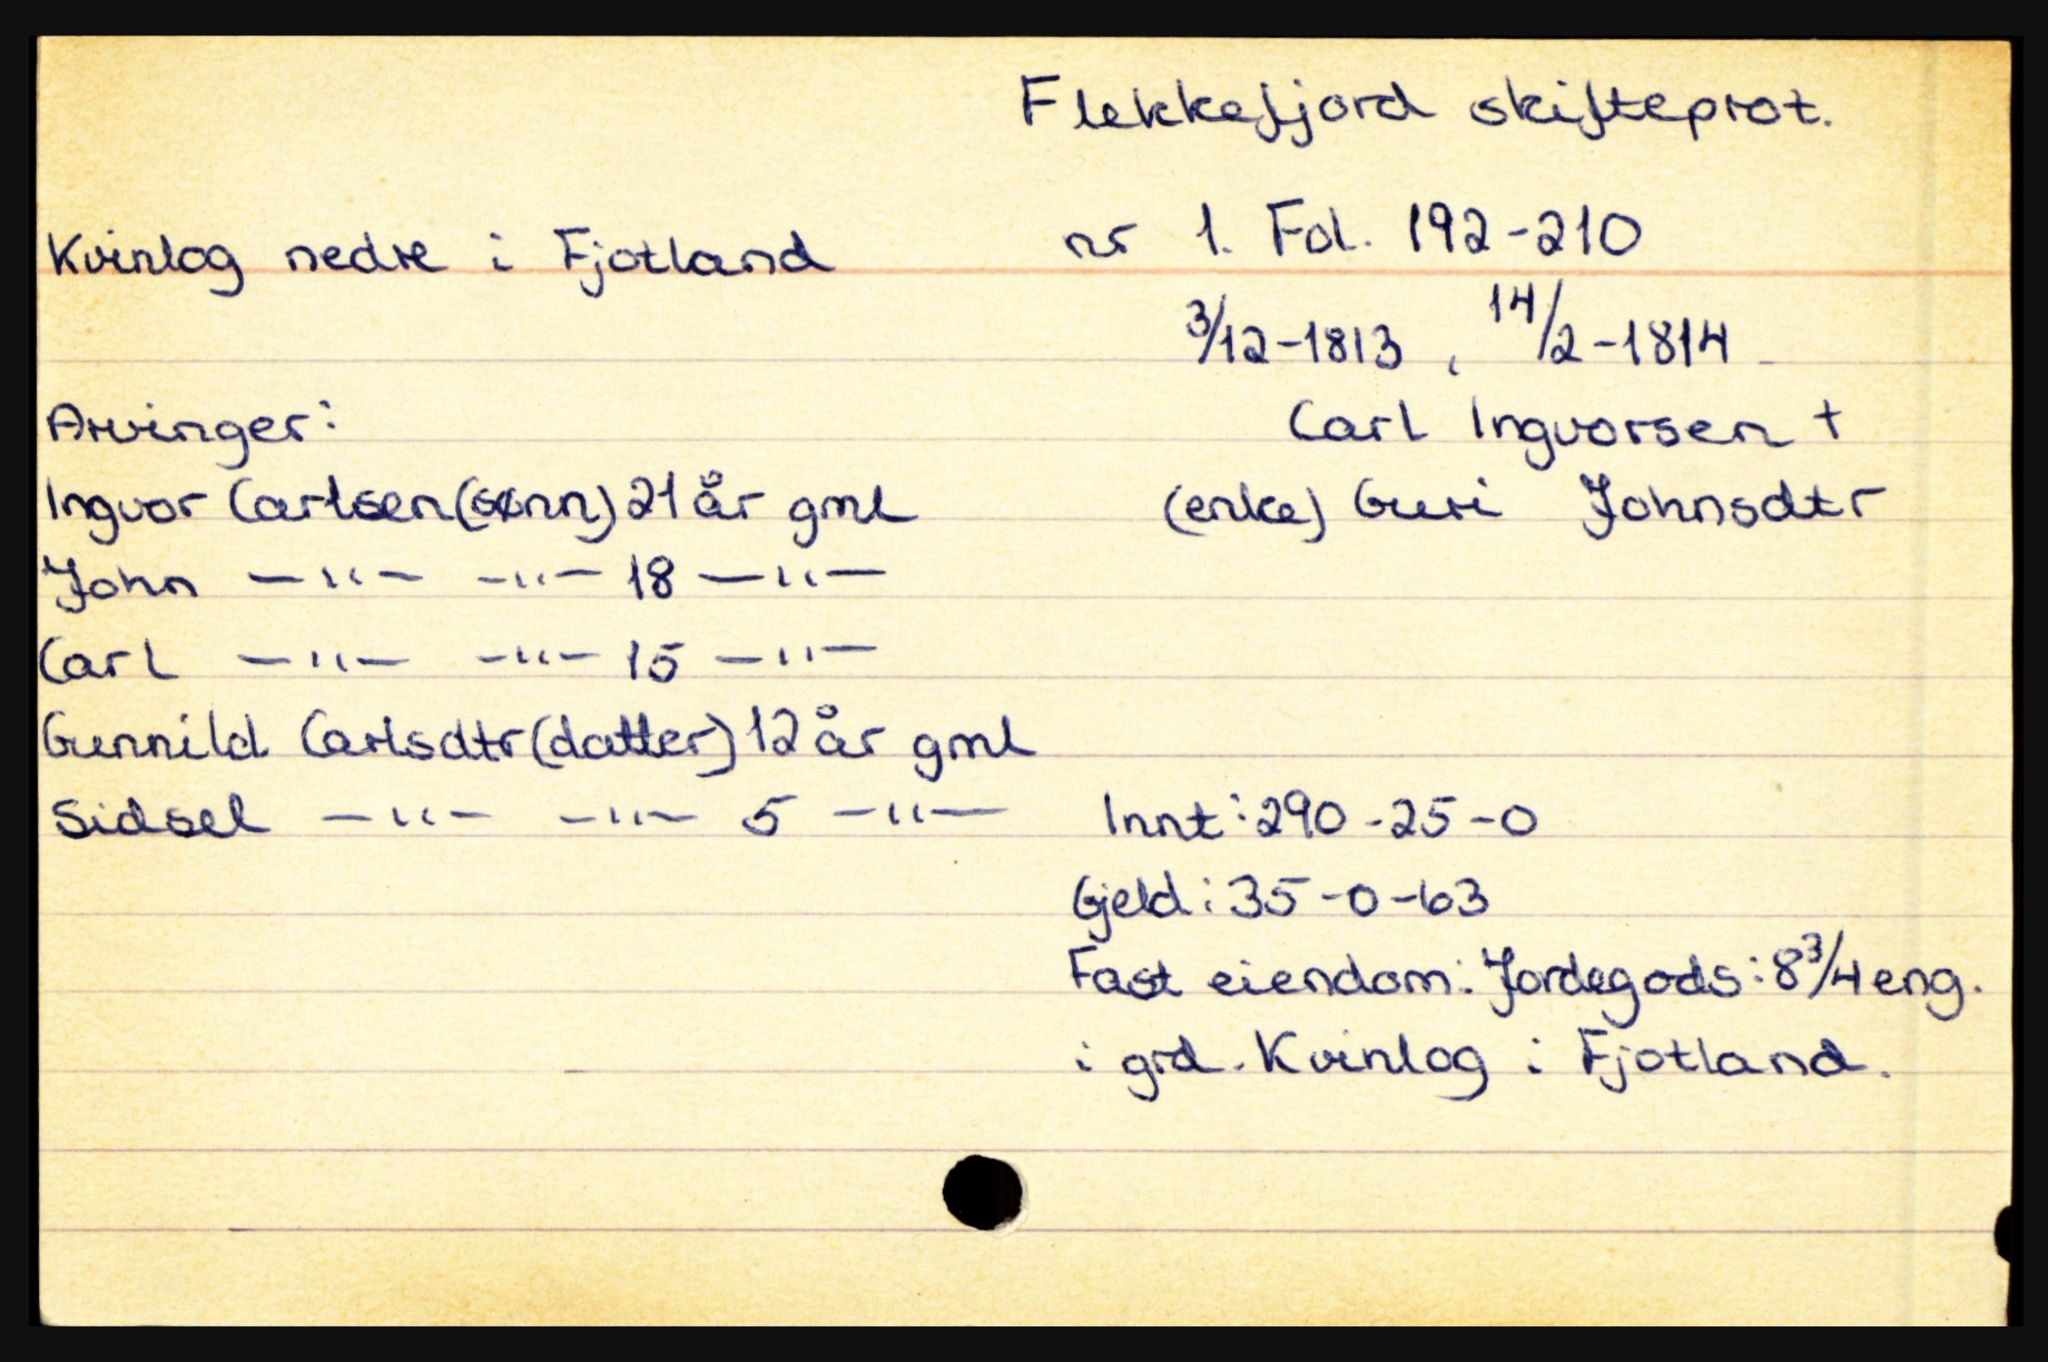 Flekkefjord skifteprot.
Kvinlog nedre i Fjotland nr 1. Fol. 192-210
3/12-1813, 14/2-1814
Arvinger: Carl Ingvorsen +
Ingvor Carlsen (sønn) 21 år gml (enke) Guri Johnsdtr
John —"— —"— 18 —"—
Carl —"— —"— 15 —"—
Gunnild Carlsdtr (datter) 12 år gml
Sidsel —"— —"— 5 —"— Innt: 290-25-0
Gjeld: 35-0-63
Fast eiendom: Jordegods: 8 3/4 eng.
i grd. Kvinlog i Fjotland.